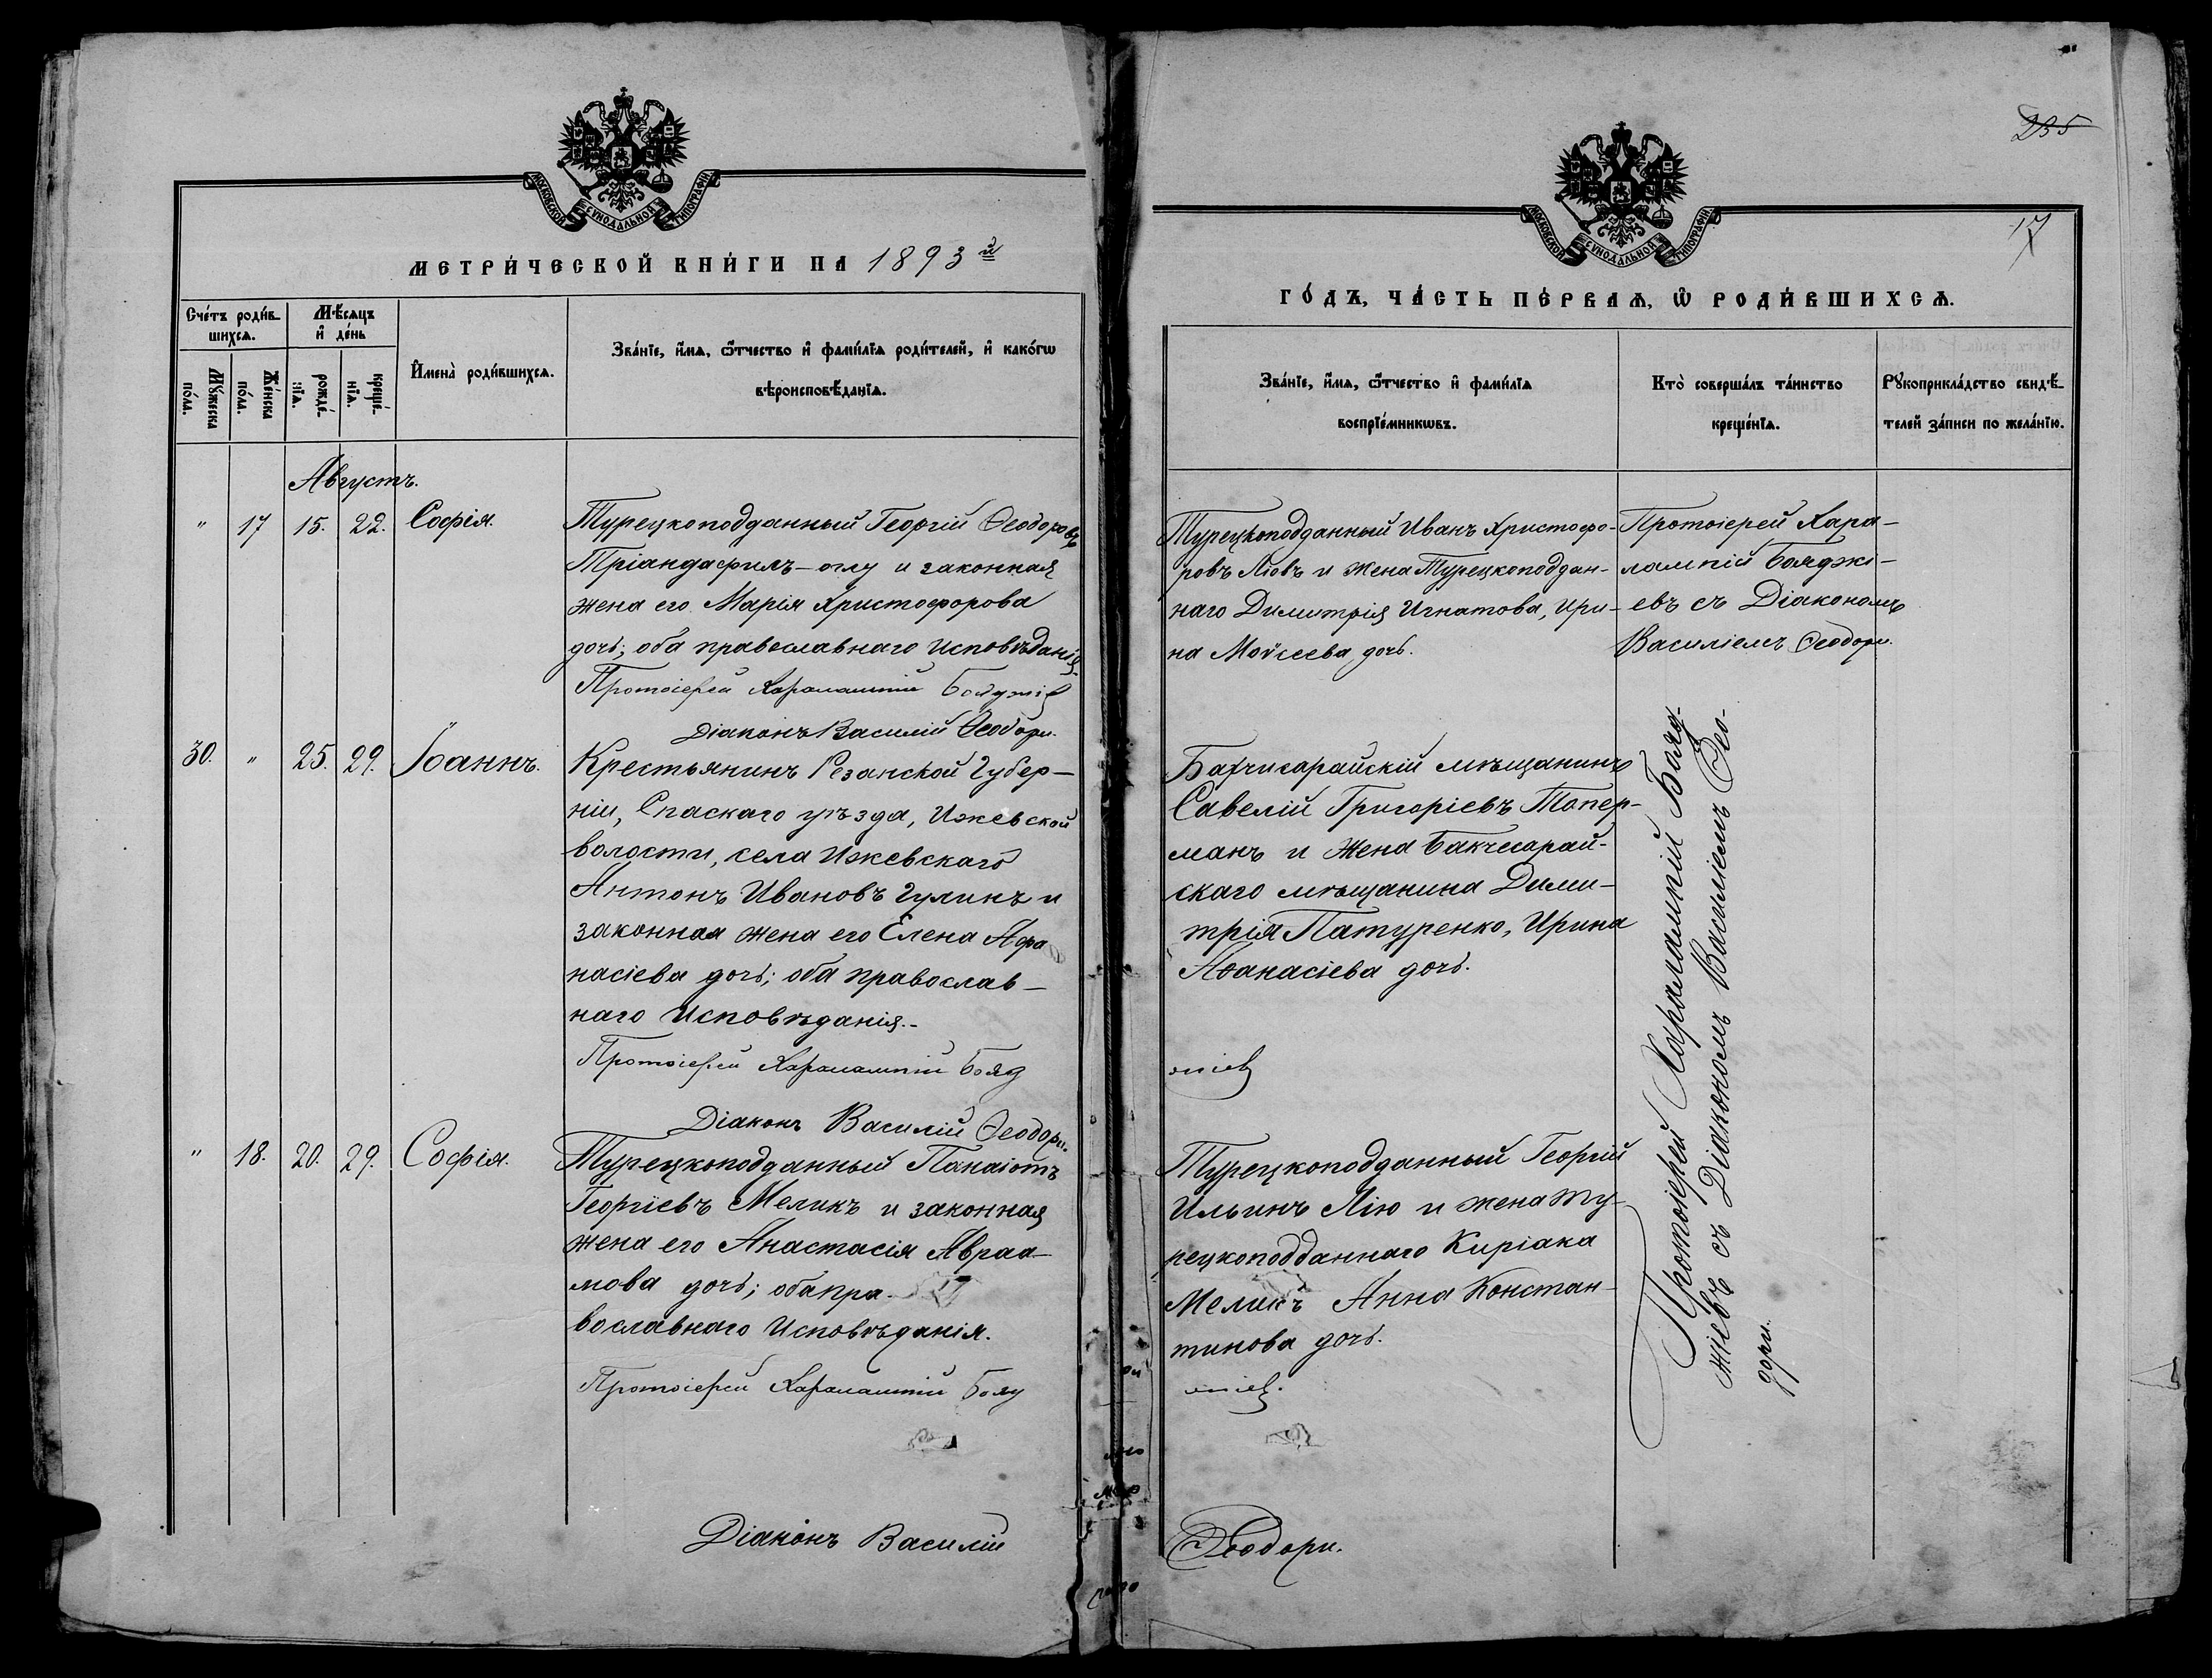 235
17
МОСКОВСКОЙ СѴНОДАЛЬНОЙ ТИПОГРАФІИ
МЕТРИ́ЧЕСКОЙ КНИ́ГИ НА 1893 й
Сче́тъ роди́в-
шихсѧ.
Мѣ́сѧцъ
и҆ де́нь
Мꙋ́жеска
по́ла.
Же́нска
по́ла.
рожде́-
нїѧ.
креще́-
нїѧ.
И҆мена̀ роди́вшихсѧ.
Зва́нїе, и҆́мѧ, ѻ҆́тчество и҆ фами́лїѧ роди́телей, и҆ како́гѡ
вѣроисповѣ́данїѧ.
Августъ.
" 17 15. 22. Софія.
Турецкоподданный Георгій Ѳеодоровъ
Тріандафилъ-оглу и законная
жена его Марія Христофорова
дочь; оба православнаго Исповѣданія.
Протоіерей Харалампій Бояджіев
Діаконъ Василій Ѳеодори.
30. " 25. 29. Іоаннъ.
Крестьянинъ Резанской Губер-
ніи, Спаскаго уѣзда, Ижевской
волости, села Ижевскаго
Антонъ Ивановъ Гулинъ и
законная жена его Елена Афа
насіева дочь; оба православ-
наго Исповѣданія.-
Протоіерей Харалампій Бояд
Діаконъ Василій Ѳеодори.
" 18. 20. 29. Софія.
Турецкоподданный Панаіотъ
Георгіевъ Меликъ и законная
жена его Анастасія Авраа-
мова дочь; оба пра-
вославнаго Исповѣданія.
Протоіерей Харалампій Бояд
Діаконъ Василій
МОСКОВСКОЙ СѴНОДАЛЬНОЙ ТИПОГРАФІИ
ГО́ДЪ, ЧА́СТЬ ПЕ́РВАѦ, Ѡ҆ РОДИ́ВШИХСѦ.
Зва́нїе, и҆́мѧ, ѻ҆́тчество и҆ фами́лїѧ
воспрїе́мникѡвъ.
Кто̀ соверша́лъ та́инство
креще́нїѧ.
Рꙋкоприкла́дство свидѣ́-
телей за́писи по жела́нїю.
Турецкоподданный Иванъ Христофо-
ровъ Ліовъ и жена Турецкоподдан-
наго Димитрія Игнатова, Ири-
на Мойсеева дочь.
Протоіерей Хара-
лампій Бояджі-
евъ съ Діакономъ
Василіемъ Ѳеодори.
Бахчисарайскій мѣщанинъ
Савелій Григоріевъ Топер-
манъ и жена Бакчесарай-
скаго мѣщанина Дими-
трія Патуренко, Ирина
Аѳанасіева дочь.
жіев
Турецкоподданный Георгій
Ильинъ Лію и жена Ту-
рецкоподданнаго Киріака
Меликъ Анна Констан-
тинова дочь.
жіев.
Ѳеодори.
Протоіерей Харалампій Бояд-
жіевъ съ Діакономъ Василіемъ Ѳео-
дори.